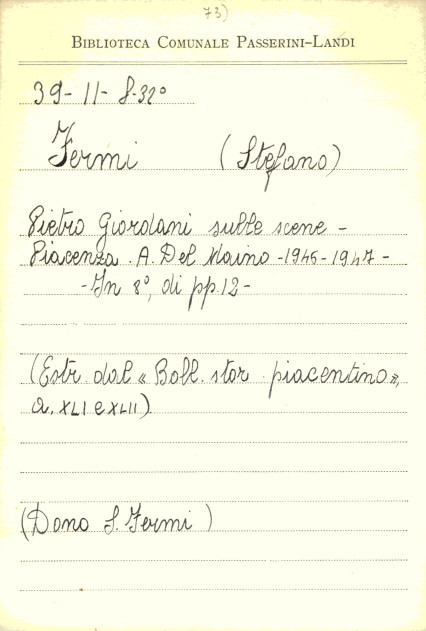 73)
BIBLIOTECA COMUNALE PASSERINI-LANDI
39-11-8.32°
Fermi (Stefano)
Pietro Giordani sulle scene -
Piacenza. A. Del Maino - 1946-1947 -
- In 8°, di pp. 12 -
(Estr. dal « Boll. stor. piacentino»,
a. XLI e XLII)
(Dono S. Fermi)